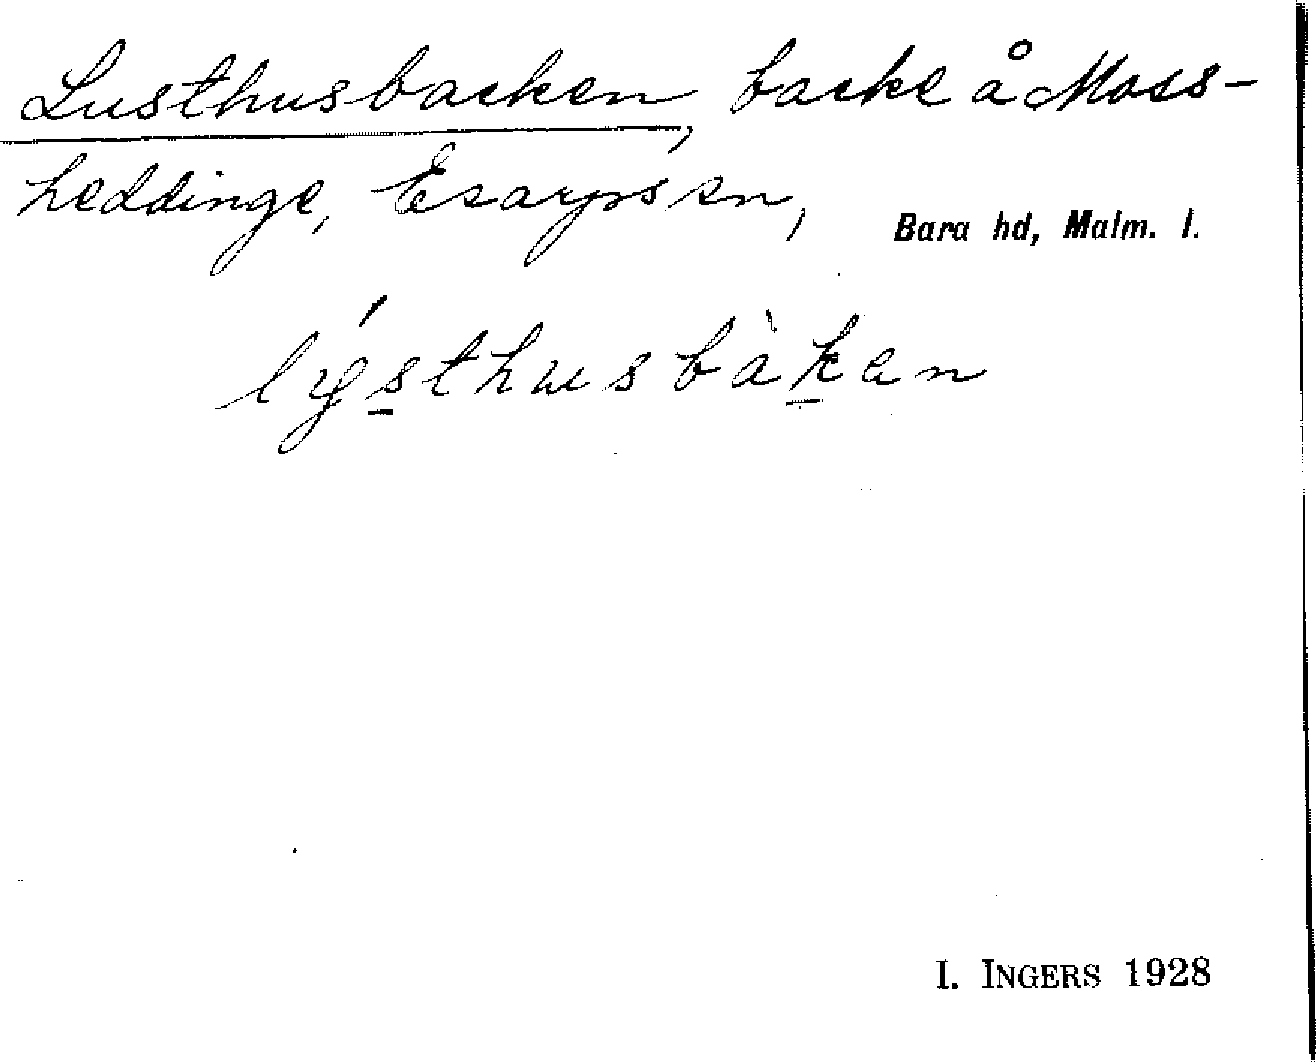 Lusthusbacken, backe å Moss-
heddinge, Esarps sn, Bara hd, Malm. l.
lýsthusbàkan
I. INGERS 1928